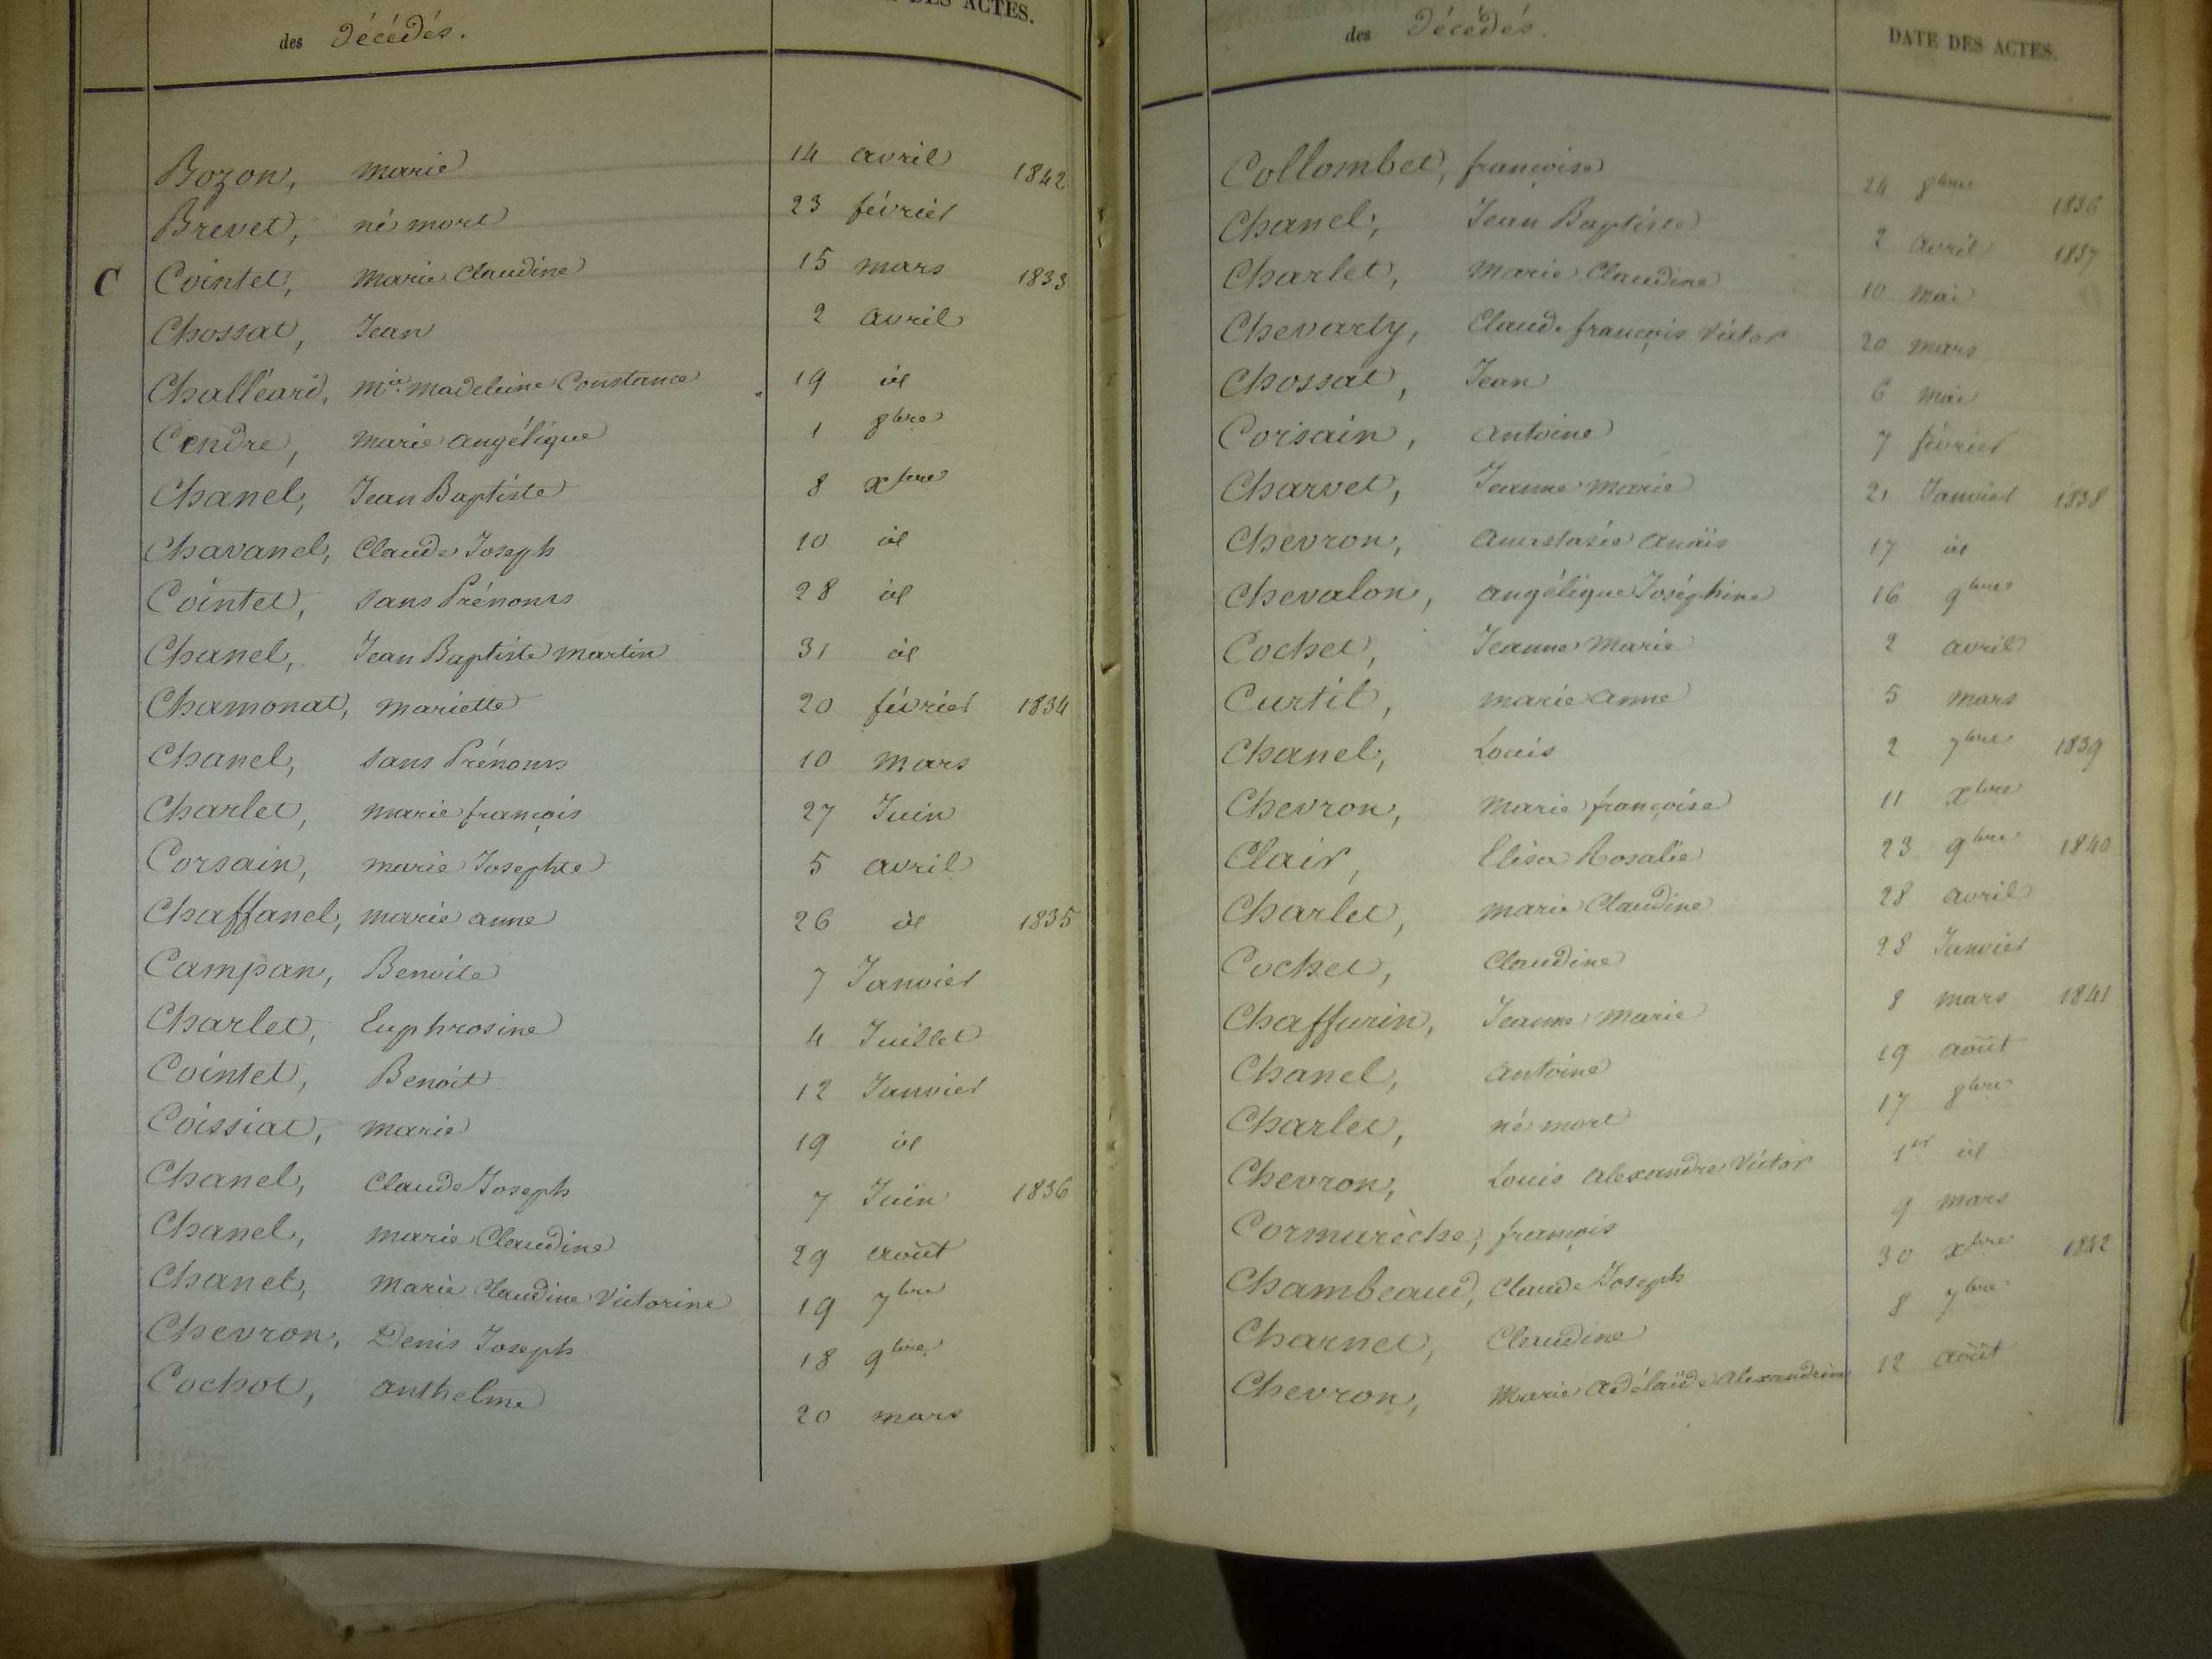 des Décédés.
DES ACTES.
Bozon, marie 14 avril 1842
Brevet, né mort 23 février
C Cointet, marie Claudine 15 mars 1833
Chossat, Jean 2 avril
Challéard, mie. madeleine Constance 19 id
Cendre, marie angélique 1 8bre
Chanel, Jean Baptiste 8 xbre
Chavanel, Claude Joseph 10 id
Cointet, sans Prénoms 28 id
Chanel, Jean Baptiste martin 31 id
Chamonat, mariette 20 février 1834
Chanel, sans Prénoms 10 mars
Charlet, marie françois 27 Juin
Corsain, marie Josephte 5 avril
Chaffanel, marie anne 26 id 1835
Campan, Benoite 7 Janvier
Charlet, Euphrosine 4 Juillet
Cointet, Benoit 12 Janvier
Coissiat, marie 19 id
Chanel, Claude Joseph 7 Juin 1836
Chanel, marie Claudine 29 août
Chanel, Marie Claudine Victorine 19 7bre
Chevron, Denis Joseph 18 9bre
Cochot, anthelme 20 mars
des Décédés.
DATE DES ACTES.
Collombet, françoise 24 8bre 1836
Chanel, Jean Baptiste 2 avril 1837
Charlet, marie Claudine 10 mai
Chevarty, Claude françois Victor 20 mars
Chossat, Jean 6 mai
Corsain, antoine 7 février
Charvet, Jeanne marie 21 Janvier 1838
Chevron, anastasie anaïs 17 id
Chevalon, angélique Joséphine 16 9bre
Cochet, Jeanne marie 2 avril
Curtil, marie anne 5 mars
Chanel, Louis 2 7bre 1839
Chevron, marie françoise 11 xbre
Clair, Elisa Rosalie 23 9bre 1840
Charlet, marie Claudine 28 avril
Cochet, Claudine 28 Janvier
Chaffurin, Jeanne marie 8 mars 1841
Chanel, antoine 19 août
Charlet, né mort 17 8bre
Chevron, Louis alexandre Victor 1er id
Cormarèche, françois 9 mars
Chambeaud, Claude Joseph 30 xbre 1842
Charnet, Claudine 8 7bre
Chevron, Marie adélaïde alexandrine 12 août